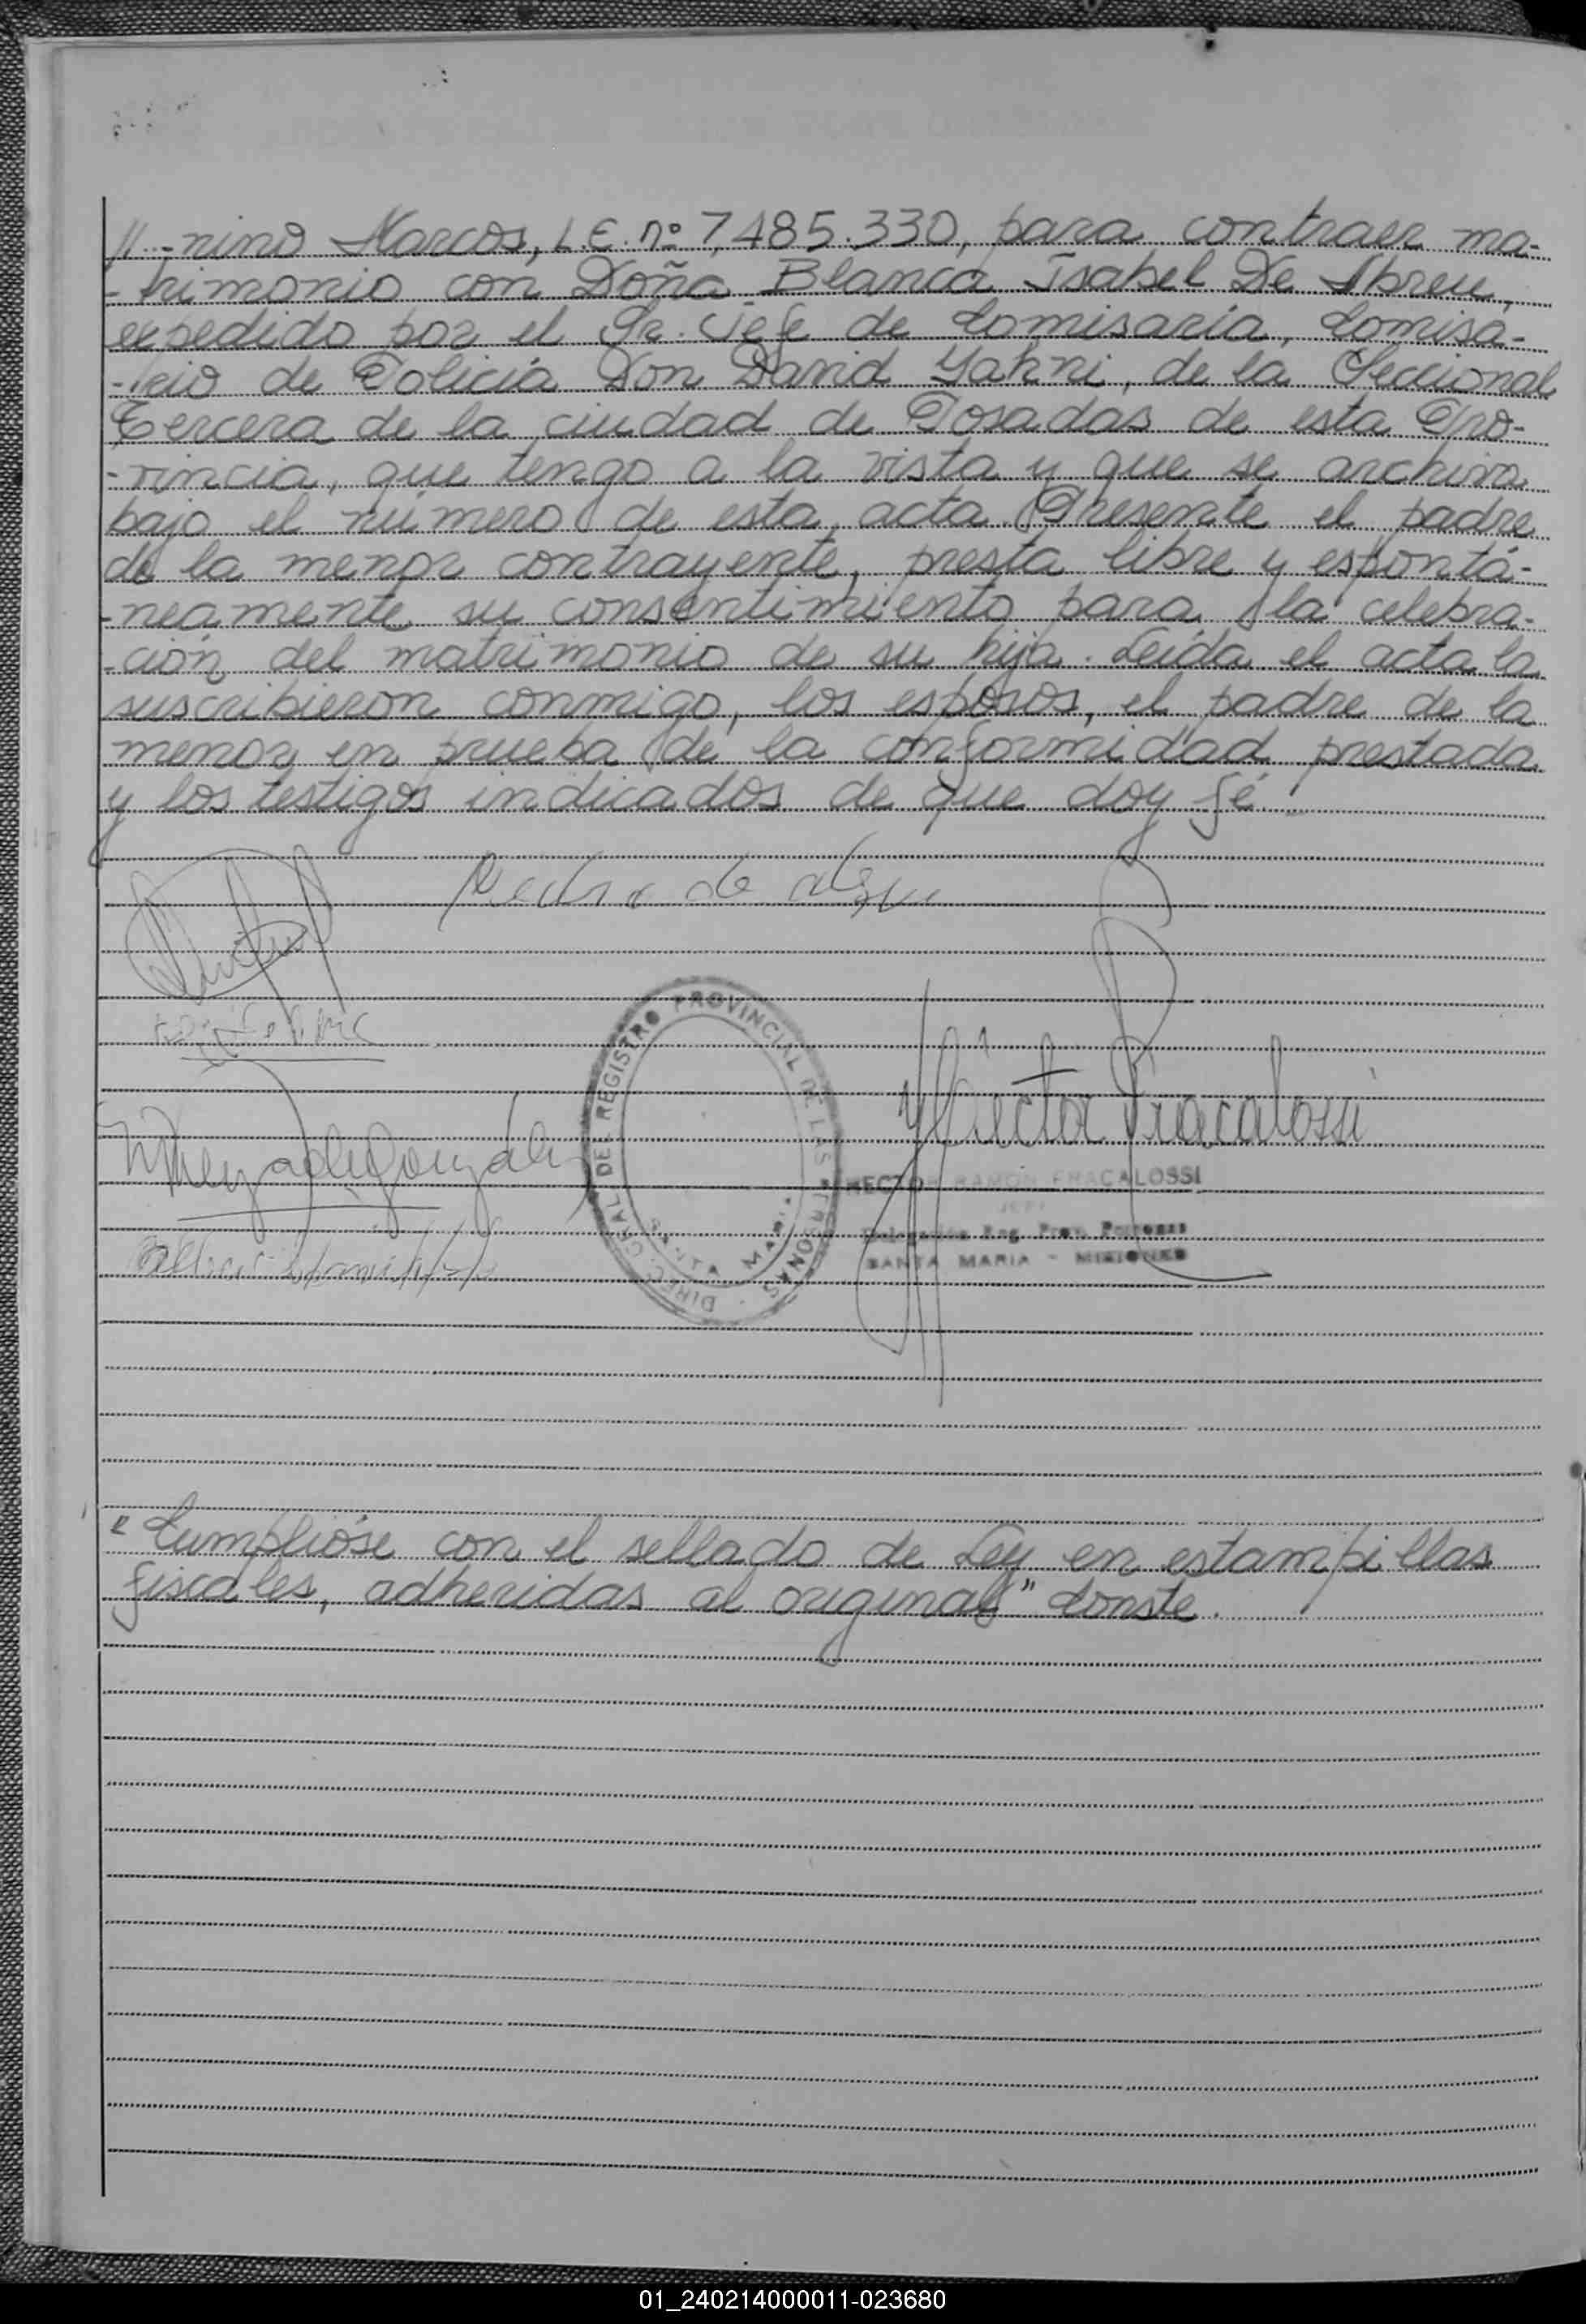 //.-nino Marcos, L.E. nº 7,485.330, para contraer ma-
-trimonio con Doña Blanca Isabel De Abreu,
expedido por el Sr. Jefe de Comisaría, Comisa-
-rio de Policía Don David Yahni, de la Seccional
Tercera de la ciudad de Posadas de esta Pro-
-vincia, que tengo a la vista y que se archiva
bajo el número de esta acta. Presente el padre
de la menor contrayente, presta libre y espontá-
-neamente su consentimiento para la celebra-
-ción del matrimonio de su hija. Leída el acta la
suscribieron conmigo, los esposos, el padre de la
menor en prueba de la conformidad prestada
y los testigos indicados de que doy fé.-
Pedro de
DIREC. GRAL. DE REGISTRO PROVINCIAL DE LAS PERSONAS
SANTA MARIA
Hector Fracalossi
HECTOR RAMON FRACALOSSI
JEFE
Delegación Reg. Prov. Personas
SANTA MARIA - MISIONES
"Cumplióse con el sellado de Ley en estampillas
fiscales, adheridas al original" Conste.
01_240214000011-023680